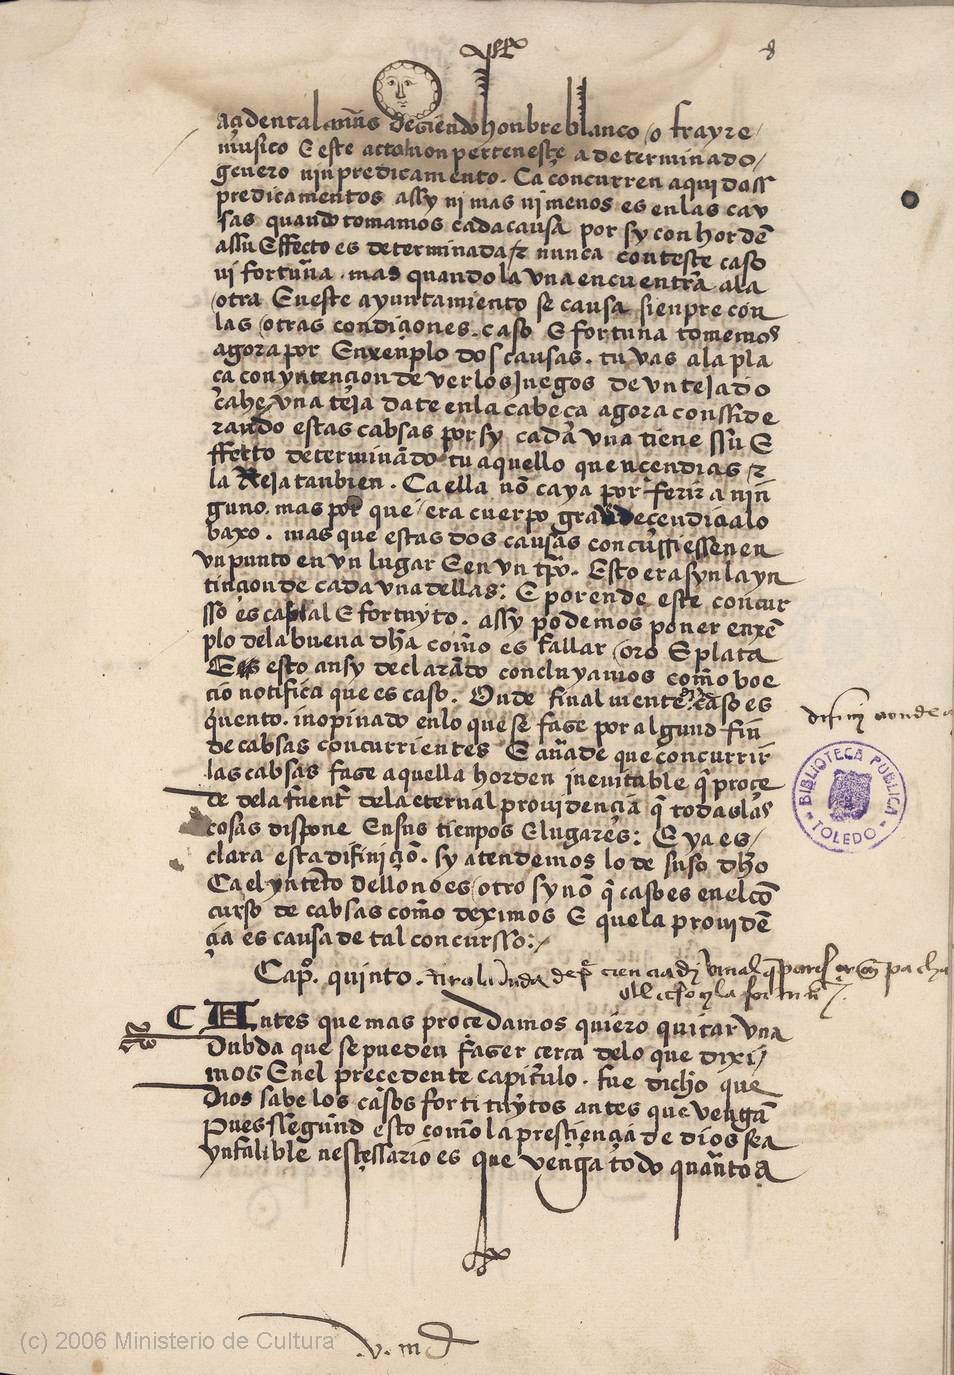 8
açidental. mas desiendo honbre blanco / o frayre /
musico E este acto non pertenesçe a determinado /
genero nin predicamento. Ca concurren aqui doss
predicamentos assy ni mas ni menos es en las cau
sas quando tomamos cada causa por sy con hordē
assu Effecto es determinada r nunca conteste caso
ni fortuna. mas quando la vna encuentra ala
otra E neste ayuntamiento se causa sienpre con
las otras condiçiones. caso E fortuna tomemos
agora por Enxenplo dos causas. tu vas ala pla
ça con yntençion de ver los juegos de vn tejado
cahe vna teja date en la cabeça agora consside
rando estas cabsas por sy cada vna tiene ssu E
ffetto determinādo tu aquello que uendias r
la Reja tanbien. Ca ella nō caya por ferir a nin
guno. mas por que era cuerpo graue deçendia alo
baxo. mas que estas dos causas concurriessen en
vn punto en vn lugar E en vn tpō. Esto era syn la yn
tinçion de cada vna dellas: E por ende este concur
sso es casual E fortuyto. assy podemos poner enxē
plo dela buena dha como es fallar oro E plata
E esto ansy declarādo concluyamos como boe
çio notifica que es caso. Onde final mente caso es
quento. inopinado en lo que se fase por algund fin
de cabsas concurrientes E añade que concurrir
las cabsas fase aquella horden ineuitable q̄ proçe
de dela fuent dela eternal prouidençia q̄ todas las
cosas dispone En sus tienpos E lugares: E ya es /
clara esta difiniçiō. sy atendemos lo de suso dho
Ca el yntento dello no es otro sy nō q̄ caso es en el cō
curso de cabsas como deximos E que la prouidē
çia es causa de tal concursso:
BIBLIOTECA PUBLICA
TOLEDO
Capº. quinto.
C Antes que mas proçedamos quiero quitar vna
Dubda que se pueden faser cerca delo que dixi
mos En el preçedente capitulo. fue dicho que
Dios sabe los casos fortituytos antes que vengā
Pues ssegund esto como la presçiençia de dios sea
ynfalible nesçessario es que venga todo quanto a
v. m
(c) 2006 Ministerio de Cultura